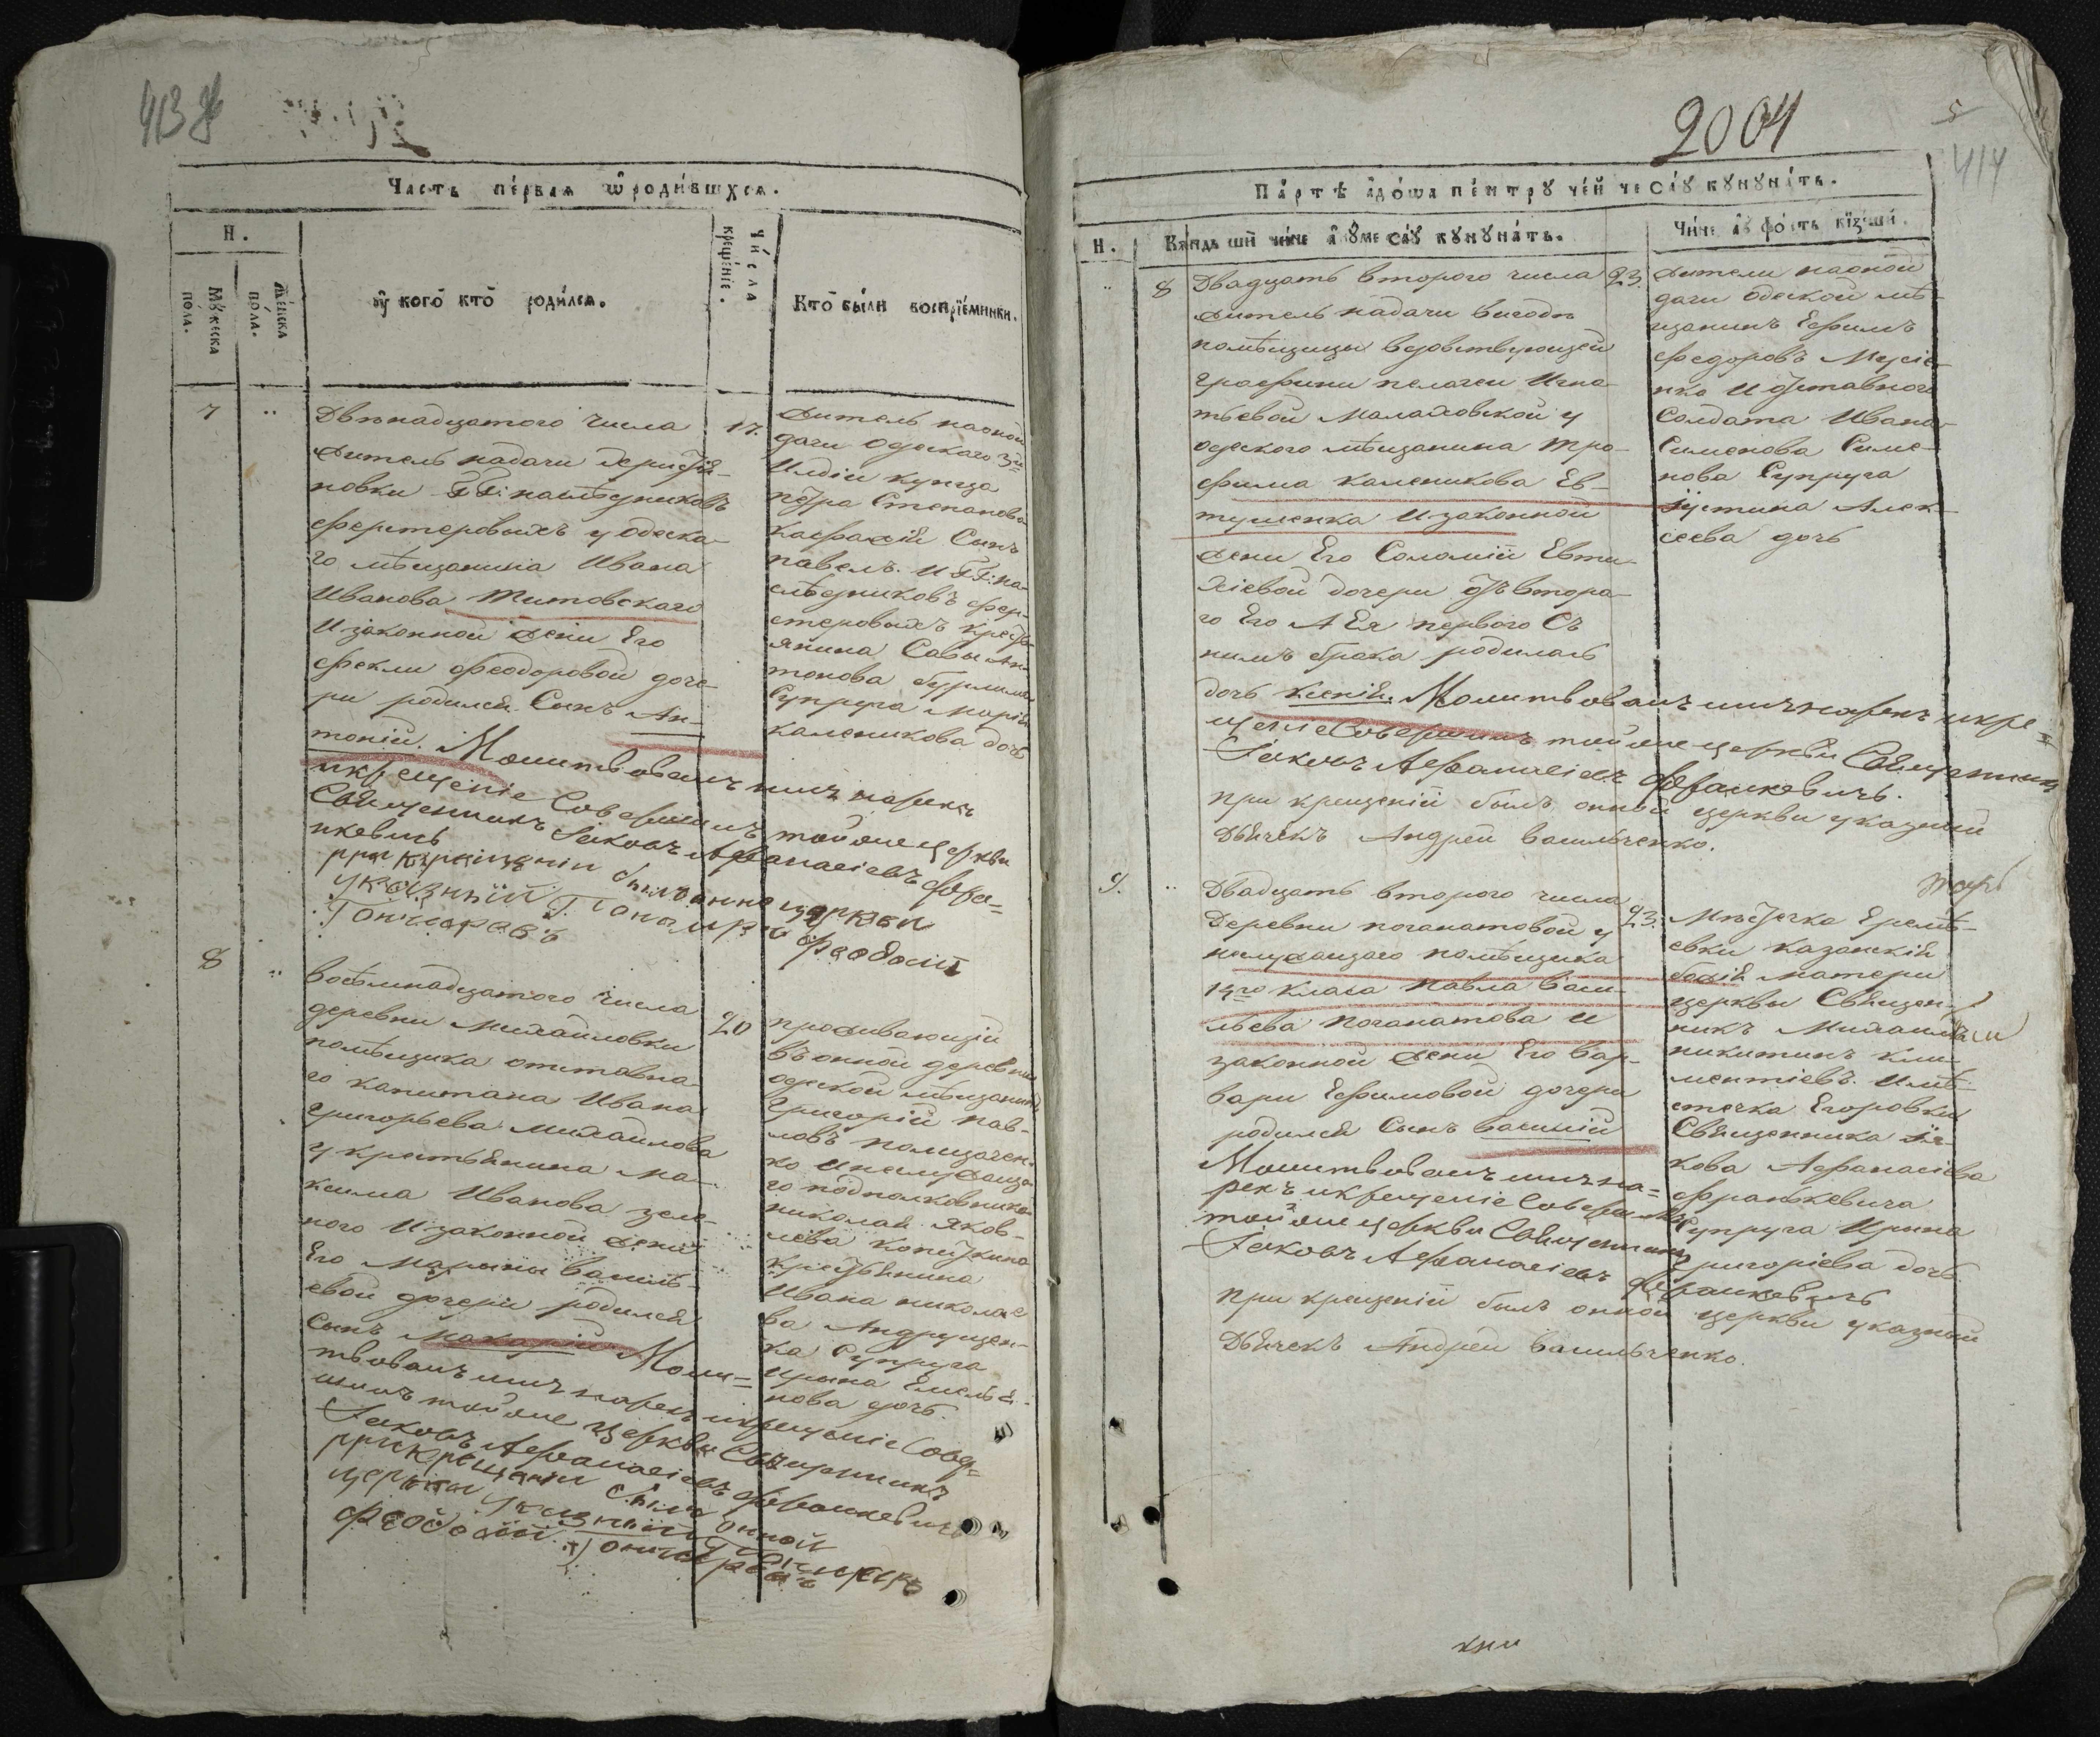 413
Часть пе́рвая ѡ҆ роди́вшихся.
Н.
Му́жеска по́ла.
Же́нска по́ла.
Ѹ҆ кого̀ кто̀ роди́лся.
Чи́сла креще́нїе.
Кто̀ бы́ли воспрїе́мники.
7
Двенадцатого числа
житель надачи
новки Г.Г: наследниковъ
ферстеровыхъ у одеска-
го мѣщанина Ивана
Иванова Титовскаго
и законной жени Его
феклы феодоровой доче-
ри родился Сынъ Ан-
тоній. Молитвовалъ имъ нарекъ
икрещеніе Совершилъ тойже церкви
Священникъ Іаковъ Афанасіевъ Фра-
нкевичъ
при крещеніи былъ онно церкви
указный Панамарь Феодосій
Гончаровъ
17.
житель наоной
дачи Одескаго 3й
Илдіи купца
петра Степанова
Сынъ
павелъ. и Г.Г: на-
следниковъ фер-
стеровыхъ крест
янина Савы Ан-
тонова
Супруга Марія
каленикова дочь
8
восемнадцатого числа
деревни Михайловки
помѣщика отставна-
го капитана Ивана
Григорьева Михайлова
у крестьянина Ма-
ксима Иванова зеле-
ного и законной жени
Его Марыны василь-
евой дочери родился
Сынъ Макарій Моли=
твовалъ имъ нарекъ икрещеніе Совер=
шилъ тойже церкви Священникъ
Іаковъ Афанасіевъ Франкевичъ
при крещеніи былъ онной
церкви указный Панамарь
Феодосій Гончаровъ
20
проживающій
въ онной деревни
одеской мѣщанинъ
Григорій пав-
ловъ
ко и
го подполковника
николая яков-
лева
крестьянина
Ивана николае
ва Андрущен-
ка Супруга
Ирина Емелья-
нова дочь.
2004
5
414
Па́ртѣ а҆до́ша пе́нтрꙋ че́й че сѧ́ꙋ кꙋнꙋна́ть.
Н.
Кѫндь ши чине а҆нꙋме сѧ́ꙋ кꙋнꙋна́ть.
Чи́не а҆ꙋ фо́сть
8
Двадцать второго числа
житель надачи выгоды
помѣщицы вдовствующей
графини пелагеи Игна-
тьевой Малаховской у
одеского мѣщанина тро-
фима каленикова Ев-
тушенка и законной
жени Его Соломіи Евти-
хіевой дочери отъ втора-
го Его А Ея первого Съ
нимъ брака родилась
дочь Ксенія. Молитвовалъ имъ нарекъ икре=
щеніе Совершилъ тойже церкви Священникъ
Іаковъ Афанасіевъ Франкевичъ.
при крещеніи былъ онной церкви указный
Дьячекъ Андрей Васильченко.
23.
жители наоной
дачи Одеской мѣ-
щанинъ Ефимъ
федоровъ Мусіе-
нко и отставного
Солдата Ивана
Симонова Симо-
нова Супруга
Іустина Алек-
сеева дочь
9.
Двадцать второго числа
Деревни поганатовой у
помѣщика
14го класа Павла Васи-
льева поганатова и
законной жени Его вар-
вары Ефимовой дочери
родился Сынъ василій
Молитвовалъ имъ на=
рекъ икрещеніе Совершилъ
тойже церкви Священникъ
Іаковъ Афанасіевъ Франкевичъ
при крещеніи былъ онной церкви указный
Дьячекъ Андрей Васильченко.
23.
Местечка Ереме-
евки казанскія
божія матери
церкви Священ-
никъ Михаилъ
никитинъ кли-
ментіевъ. и мѣ-
стечка Егоровки
Священника Іа-
кова Афанасіева
франкевича
Супруга Ирина
Григоріева дочь